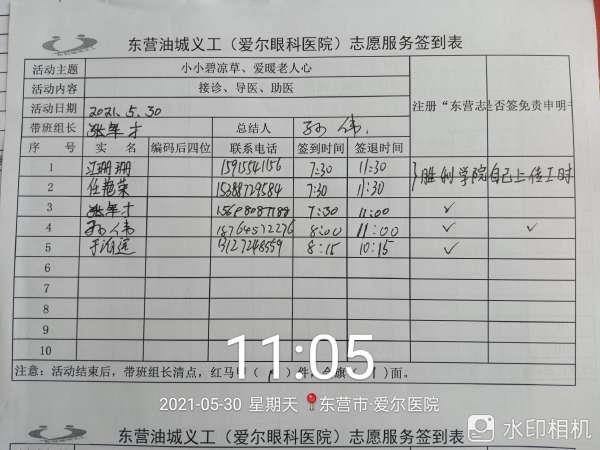 东营油城义工（爱尔眼科医院）志愿服务签到表
活动主题 小小碧凉草、爱暖老人心
活动内容 接诊、导医、助医
活动日期 2021.5.30
注册“东营志 是否签免责申明
带班组长 张军才 总结人 孙伟
序号 实名 编码后四位 联系电话 签到时间 签退时间
1 江珊珊 7:30 11:30 胜利学院自己上传工时
2 任艳荣 15288729584 7:30 11:30
3 张军才 7:30 11:00 ✓
4 孙伟 8:00 11:00 ✓ ✓
5 8:15 10:15 ✓
6
7
8
9
10
注意：活动结束后，带班组长清点，红马甲（ ）件，会旗（ ）面。
11:05
2021-05-30 星期天 东营市·爱尔医院
水印相机
东营油城义工（爱尔眼科医院）志愿服务签到表